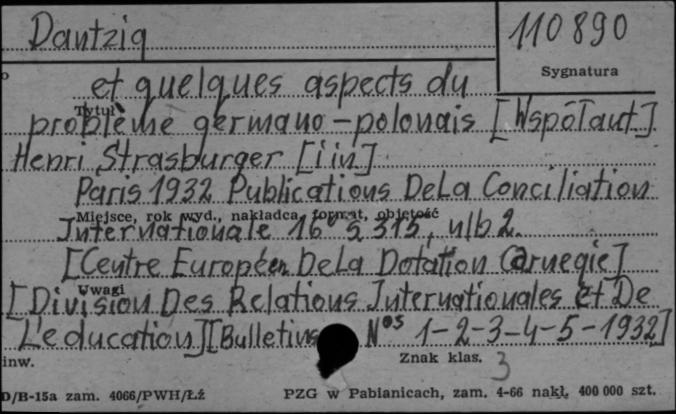 Dantzig
110890
Sygnatura
et quelques aspects du
Tytuł
problème germano-polonais [Współaut.]
Henri Strasburger [i in]
Paris 1932 Publications DeLa Conciliation
Miejsce, rok wyd., nakładca, format, objętość
Internationale 16° s 315, nlb 2.
[Centre Européen DeLa Dotation Carnegie]
Uwagi
[Division Des Relations Internationales Et De
L'education][Bulletins Nos 1-2-3-4-5-1932]
inw.
Znak klas. 3
D/B-15a zam. 4066/PWH/Łź
PZG w Pabianicach, zam. 4-66 nakł. 400 000 szt.